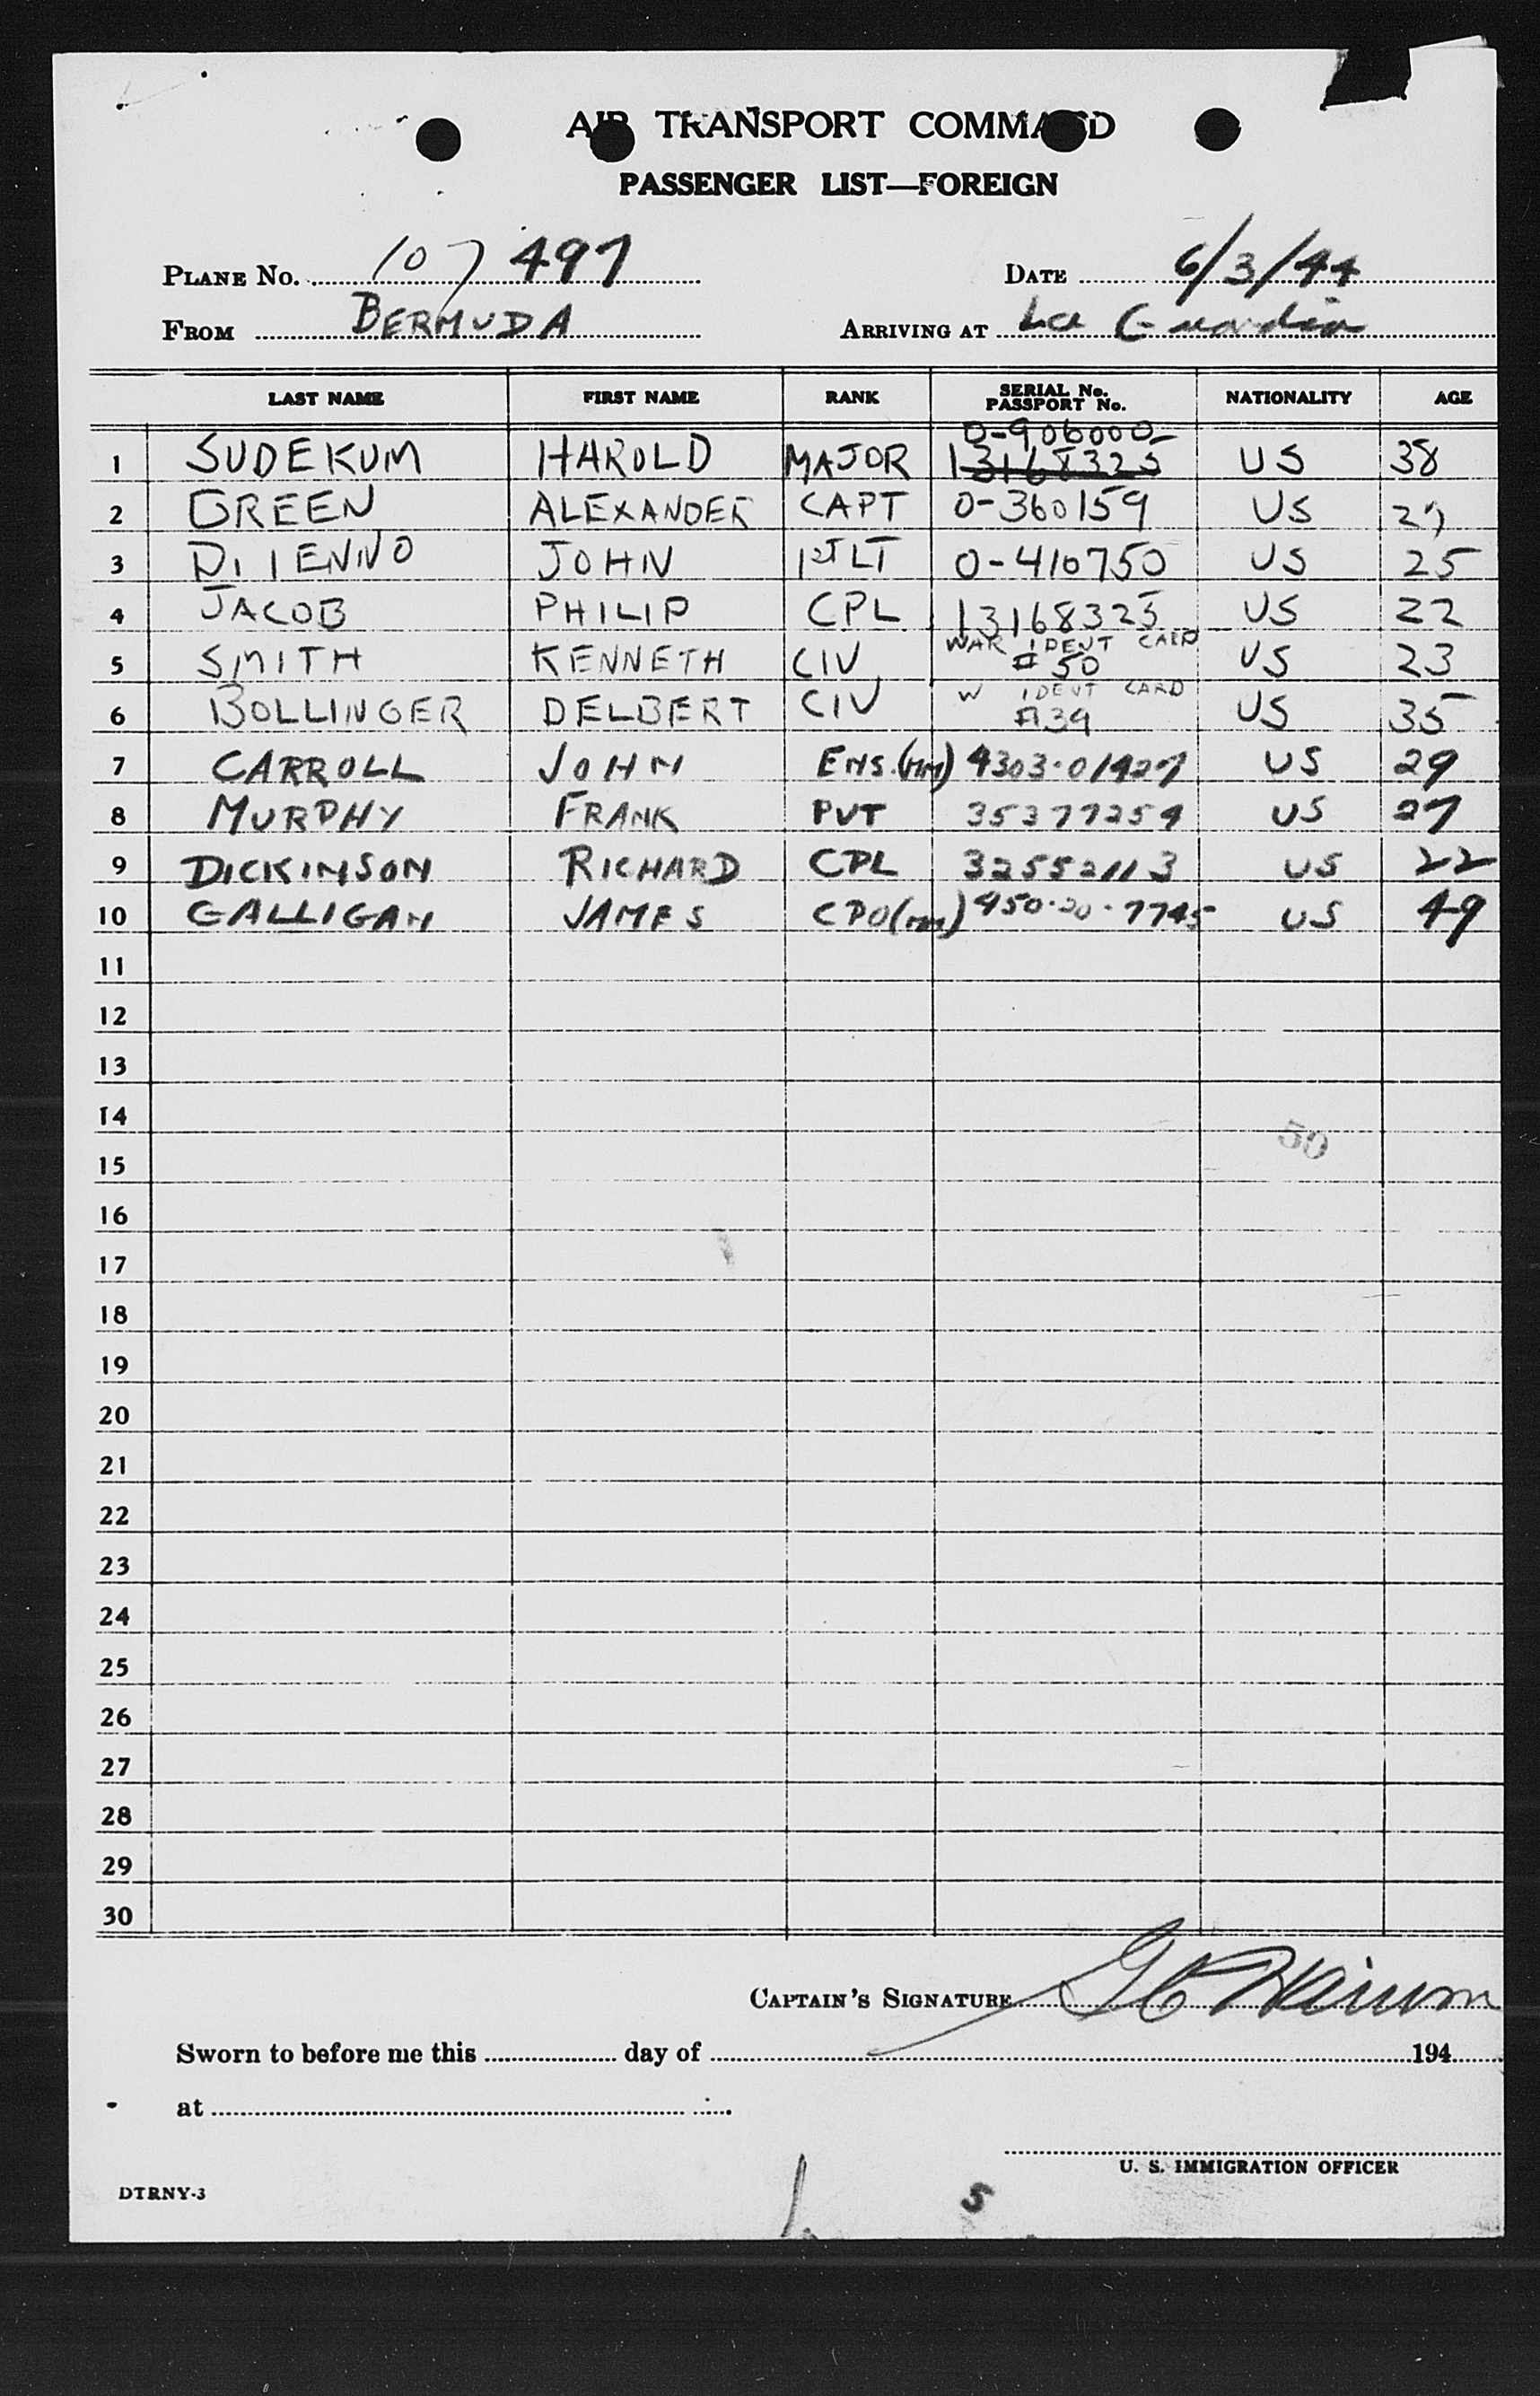 AIR TRANSPORT COMMAND
PASSENGER LIST—FOREIGN
PLANE No. 107 497 DATE 6/3/44
FROM BERMUDA ARRIVING AT La Guardia
LAST NAME FIRST NAME RANK SERIAL No. PASSPORT No. NATIONALITY AGE
1 SUDEKUM HAROLD MAJOR 0-906000 13168325 US 38
2 GREEN ALEXANDER CAPT 0-360159 US 27
3 DI IENNO JOHN 1ST LT 0-410750 US 25
4 JACOB PHILIP CPL 13168325 US 22
5 SMITH KENNETH CIV WAR IDENT CARD #50 US 23
6 BOLLINGER DELBERT CIV W IDENT CARD #39 US 35
7 CARROLL JOHN ENS.(MM) 4303-01427 US 29
8 MURPHY FRANK PVT 35377259 US 27
9 DICKINSON RICHARD CPL 32552113 US 22
10 GALLIGAN JAMES CPO(MM) 450-20-7745 US 49
11
12
13
14
50
15
16
17
18
19
20
21
22
23
24
25
26
27
28
29
30
CAPTAIN'S SIGNATURE
Sworn to before me this day of 194
at
U. S. IMMIGRATION OFFICER
DTRNY-3
5